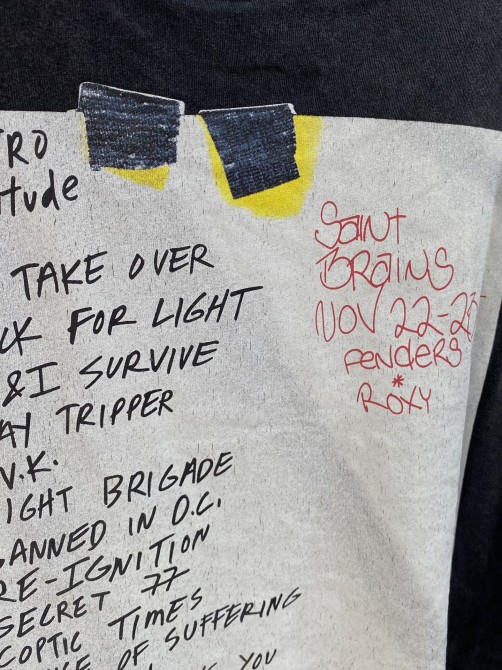 TRO
itude
TAKE OVER
CK FOR LIGHT
& I SURVIVE
AY TRIPPER
V.K.
IGHT BRIGADE
BANNED IN D.C.
RE-IGNITION
SECRET 77
COPTIC TIMES
OF SUFFERING
YOU
Saint
BRaiNS
NOV 22-2
FENDERS
*
ROXY